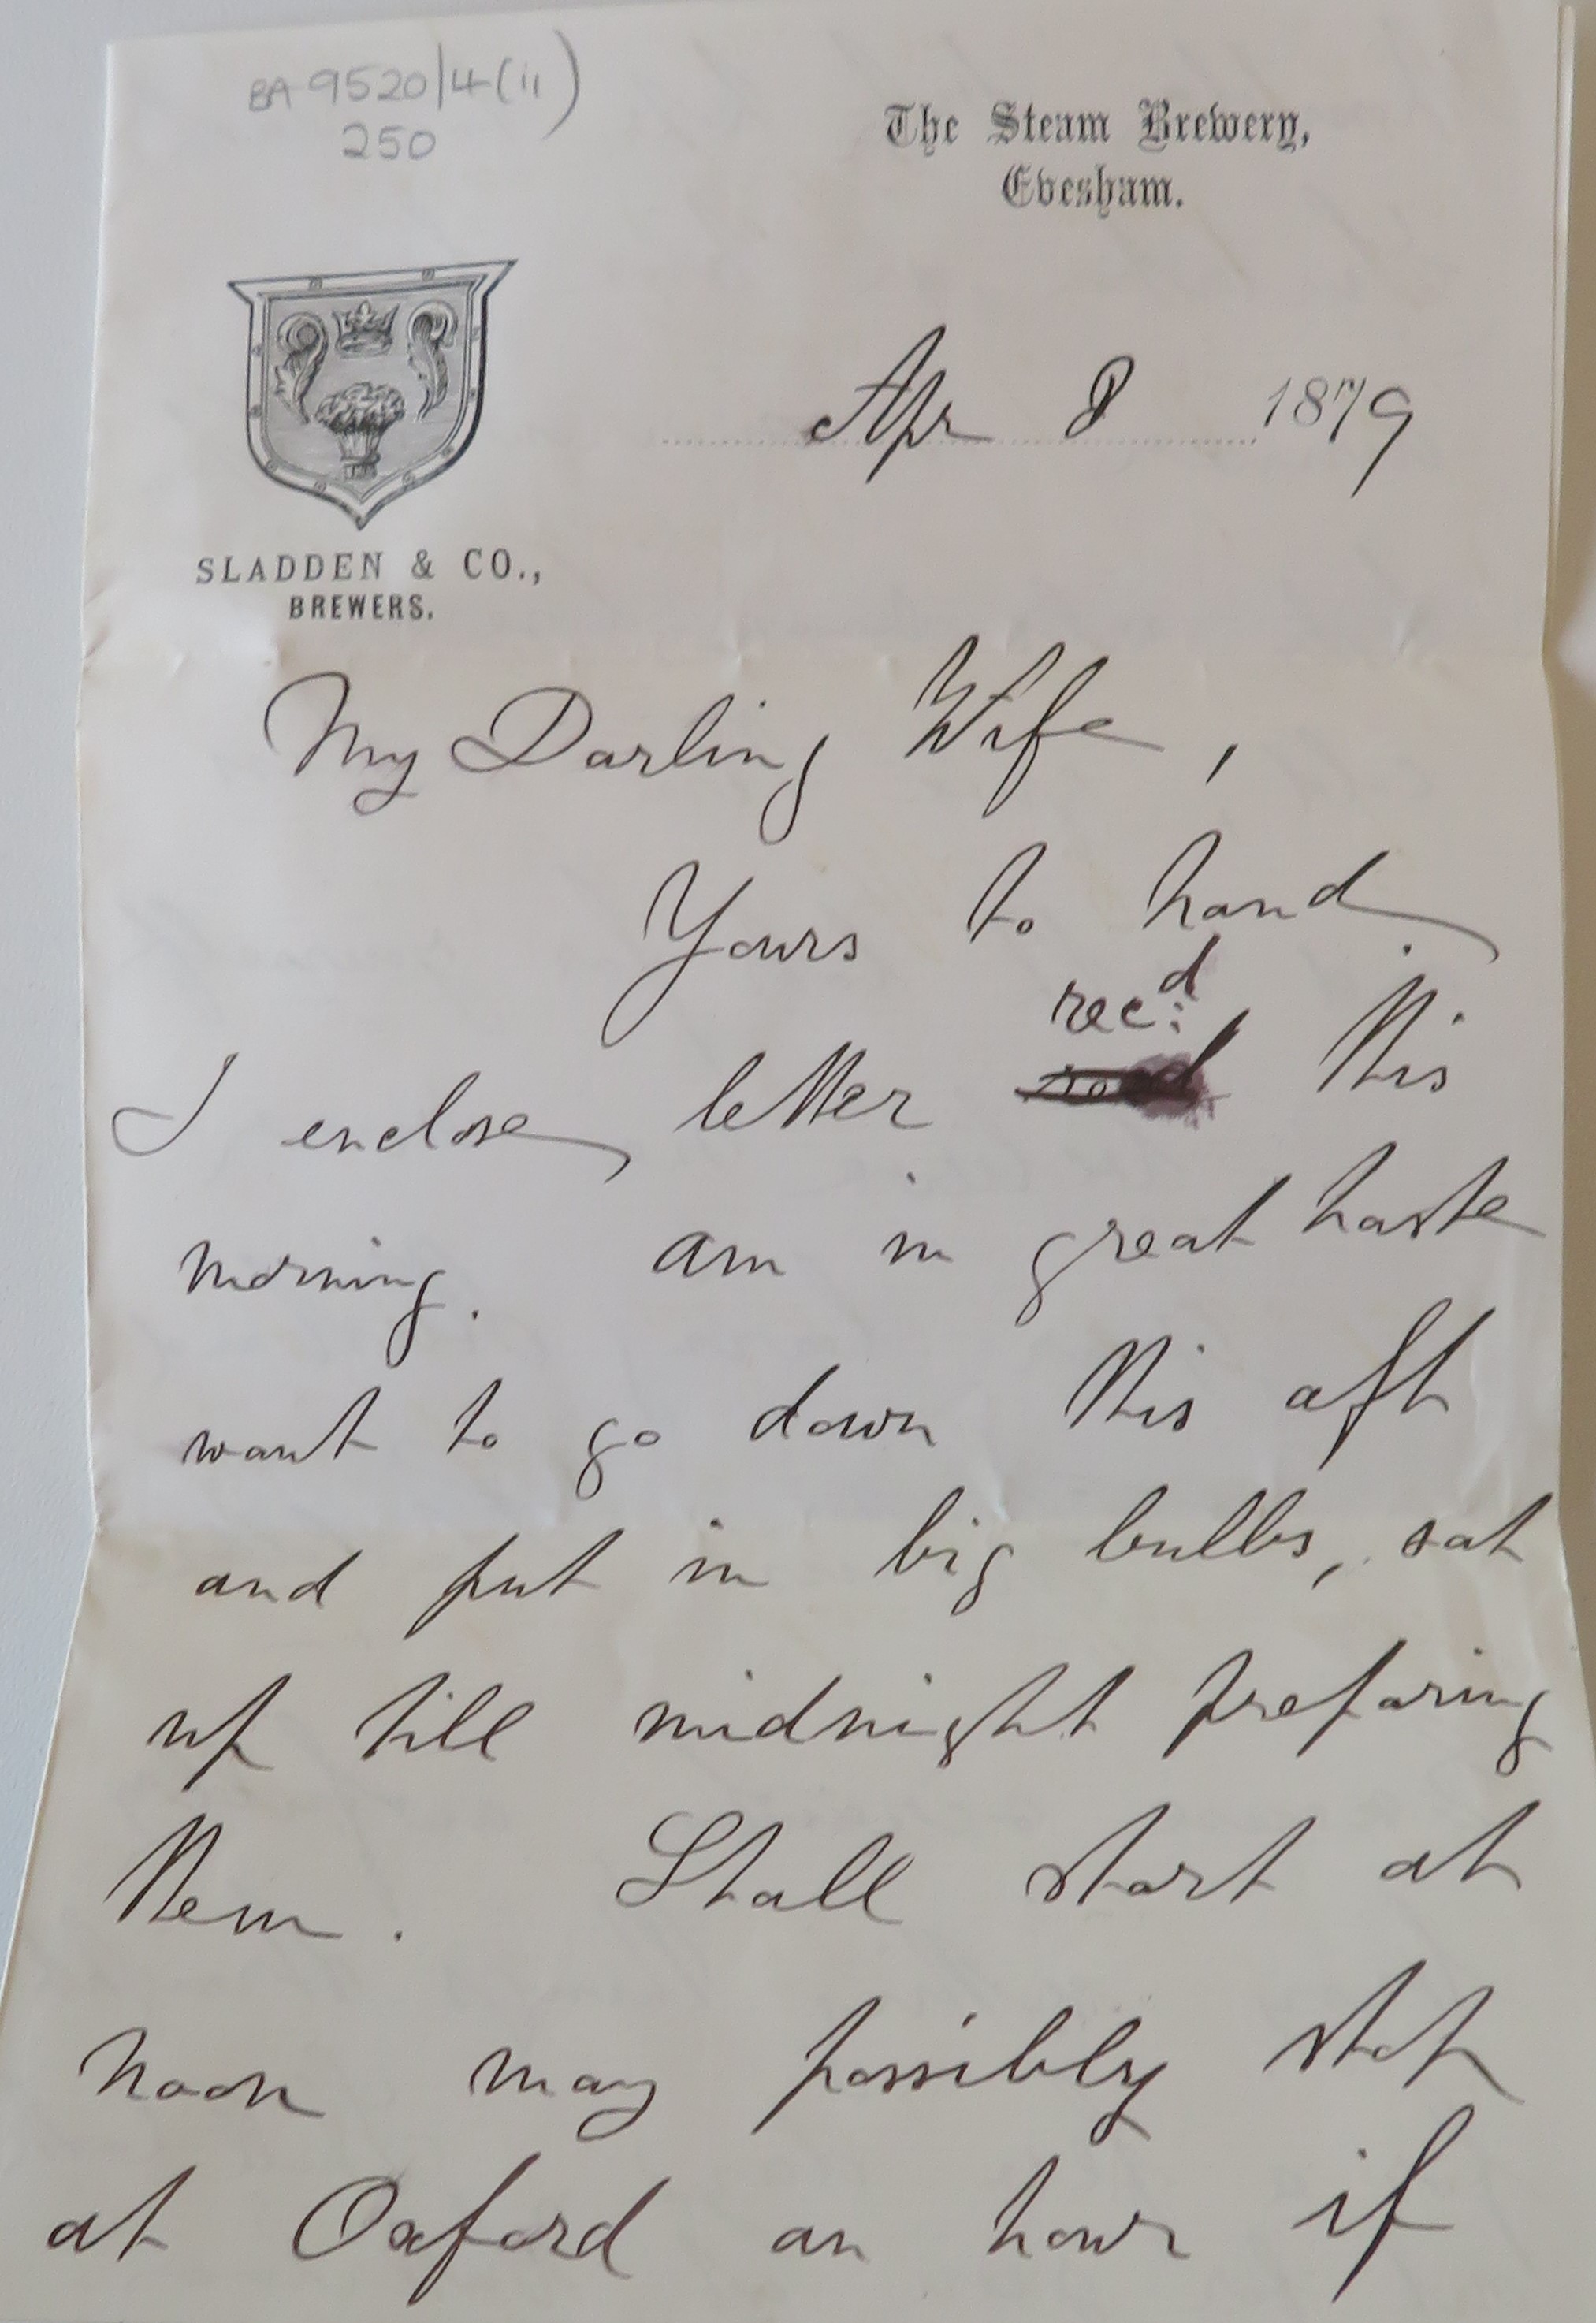 BA 9520/4(ii)
250
The Steam Brewery,
Evesham.
Apr 8 1879
SLADDEN & CO.,
BREWERS.
My Darling Wife,
Yours to hand.
rec:d
I enclose letter this
morning. am in great haste
want to go down this aft
and put in big bulbs, sat
up till midnight preparing
them. Shall start at
noon may possibly stop
at Oxford an hour if